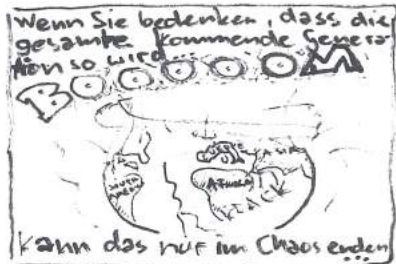 Wenn Sie bedenken, dass die
gesamte kommende Genera-
tion so wird...
BOOOOOM
AFRIKA
KLACK
Kann das nur im Chaos enden
...